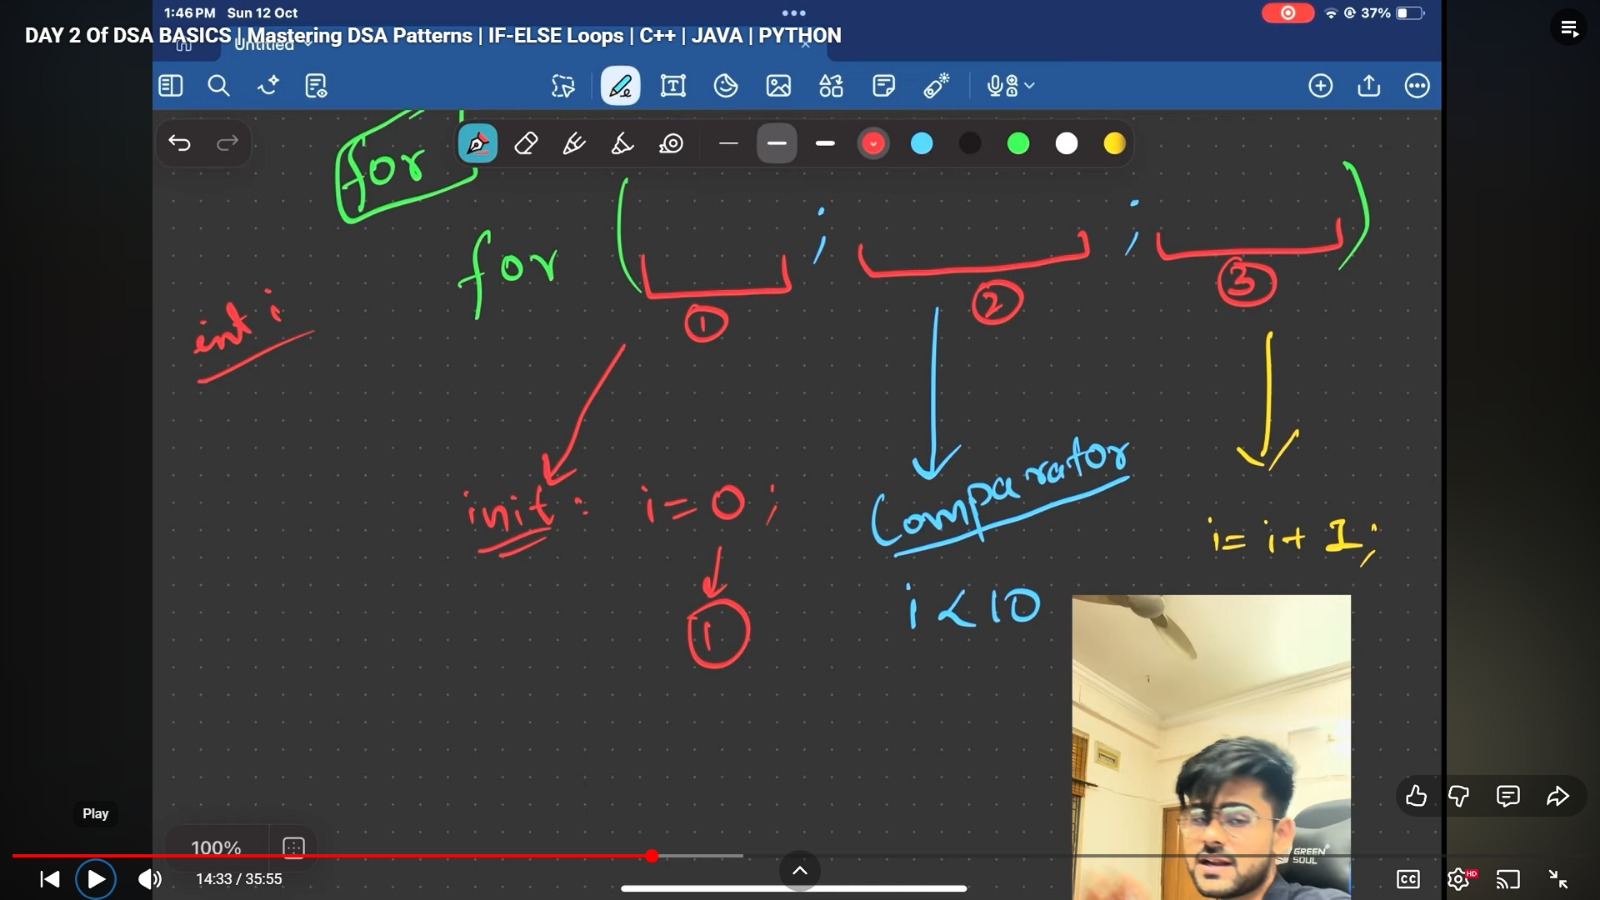 1:46 PM Sun 12 Oct
37%
DAY 2 Of DSA BASICS | Mastering DSA Patterns | IF-ELSE Loops | C++ | JAVA | PYTHON
Untitled
for
for ( ; ; )
① ② ③
int i
init : i = 0 ;
Comparator
i = i + 1 ;
1
i < 10
GREEN SOUL
Play
100%
14:33 / 35:55
CC
HD